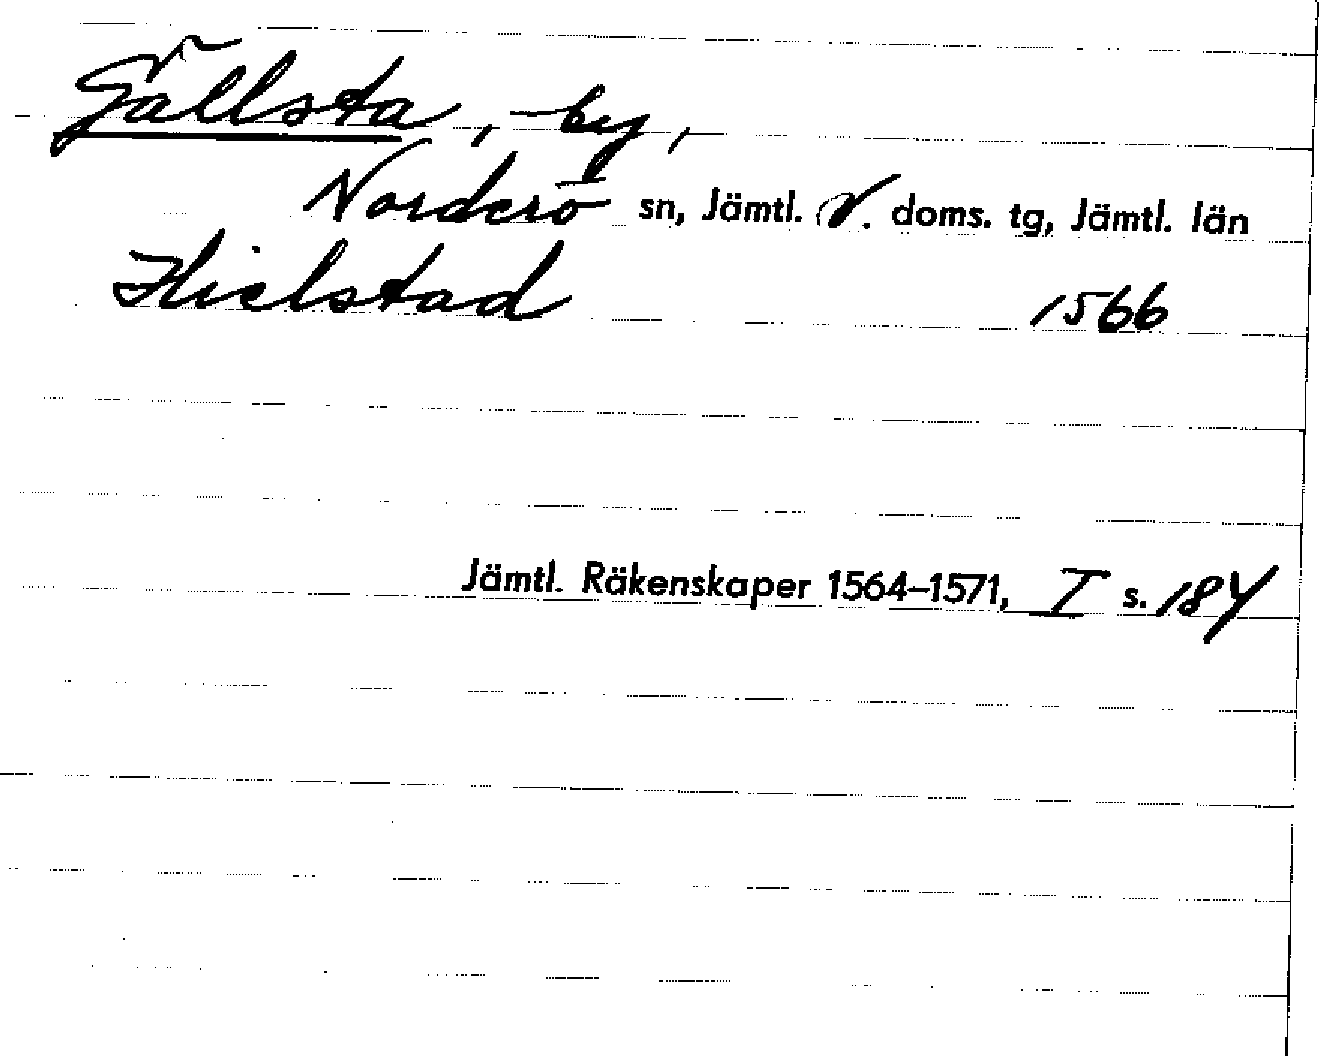 Gällsta, -by,
Norderö sn, Jämtl. V. doms. tg, Jämtl. län
Hielstad 1566
Jämtl. Räkenskaper 1564–1571, I s. 184